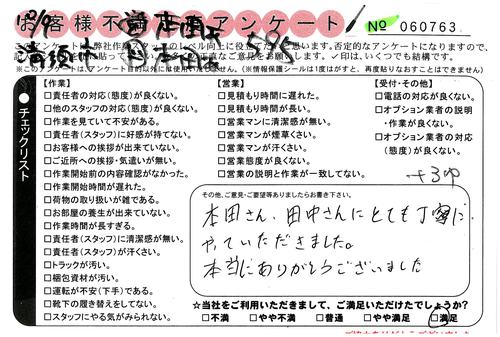 お客様不満足アンケート
No 060763
このアンケートは、弊社作業スタッフのレベル向上に役立て
と思います。否定的なアンケートになりますので、
正直なご意見をお願いします。✓印は、いくつでも結構です。
※このアンケートは、アンケート目的以外に使用いたしません。(※情報保護シールは1度はがすと、再度貼りなおすことはできません)
チェックリスト
【作業】
□責任者の対応(態度)が良くない。
□他のスタッフの対応(態度)が良くない。
□作業を見ていて不安がある。
□責任者(スタッフ)に好感が持てない。
□お客様への挨拶が出来ていない。
□ご近所への挨拶・気遣いが無い。
□作業開始前の内容確認がなかった。
□作業開始時間が遅れた。
□荷物の取り扱いが雑である。
□お部屋の養生が出来ていない。
□作業時間が長すぎる。
□責任者(スタッフ)に清潔感が無い。
□責任者(スタッフ)が汗くさい。
□トラックが汚い。
□梱包資材が汚い。
□運転が不安(下手)である。
□靴下の履き替えをしてない。
□スタッフにやる気がみられない。
【営業】
□見積もり時間に遅れた。
□見積もり時間が長い。
□営業マンに清潔感が無い。
□営業マンが煙草くさい。
□営業マンが汗くさい。
□営業態度が良くない。
□営業の説明と作業が一致してない。
【受付・その他】
□電話の対応が良くない。
□オプション業者の説明
・作業が良くない。
□オプション業者の対応
(態度)が良くない。
その他、ご意見・ご要望等ありましたらお書き下さい。
本田さん、田中さんにとても丁寧に
やっていただきました。
本当にありがとうございました
☆当社をご利用いただきまして、ご満足いただけたでしょうか?
□不満 □やや不満 □普通 □やや満足 □満足